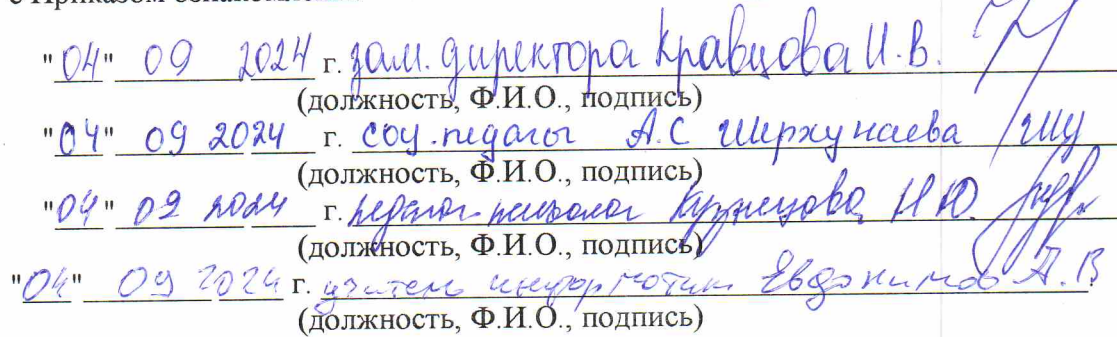 с Приказом ознакомлен
"04" 09 2024 г. зам. директора Кравцова И.В.
(должность, Ф.И.О., подпись)
"04" 09 2024 г. соц.педагог А.С Ширхунаева
(должность, Ф.И.О., подпись)
"04" 09 2024 г. педагог-психолог Кузнецова Н Ю.
(должность, Ф.И.О., подпись)
"04" 09 2024 г. учитель информатики Евдокимов А.В
(должность, Ф.И.О., подпись)